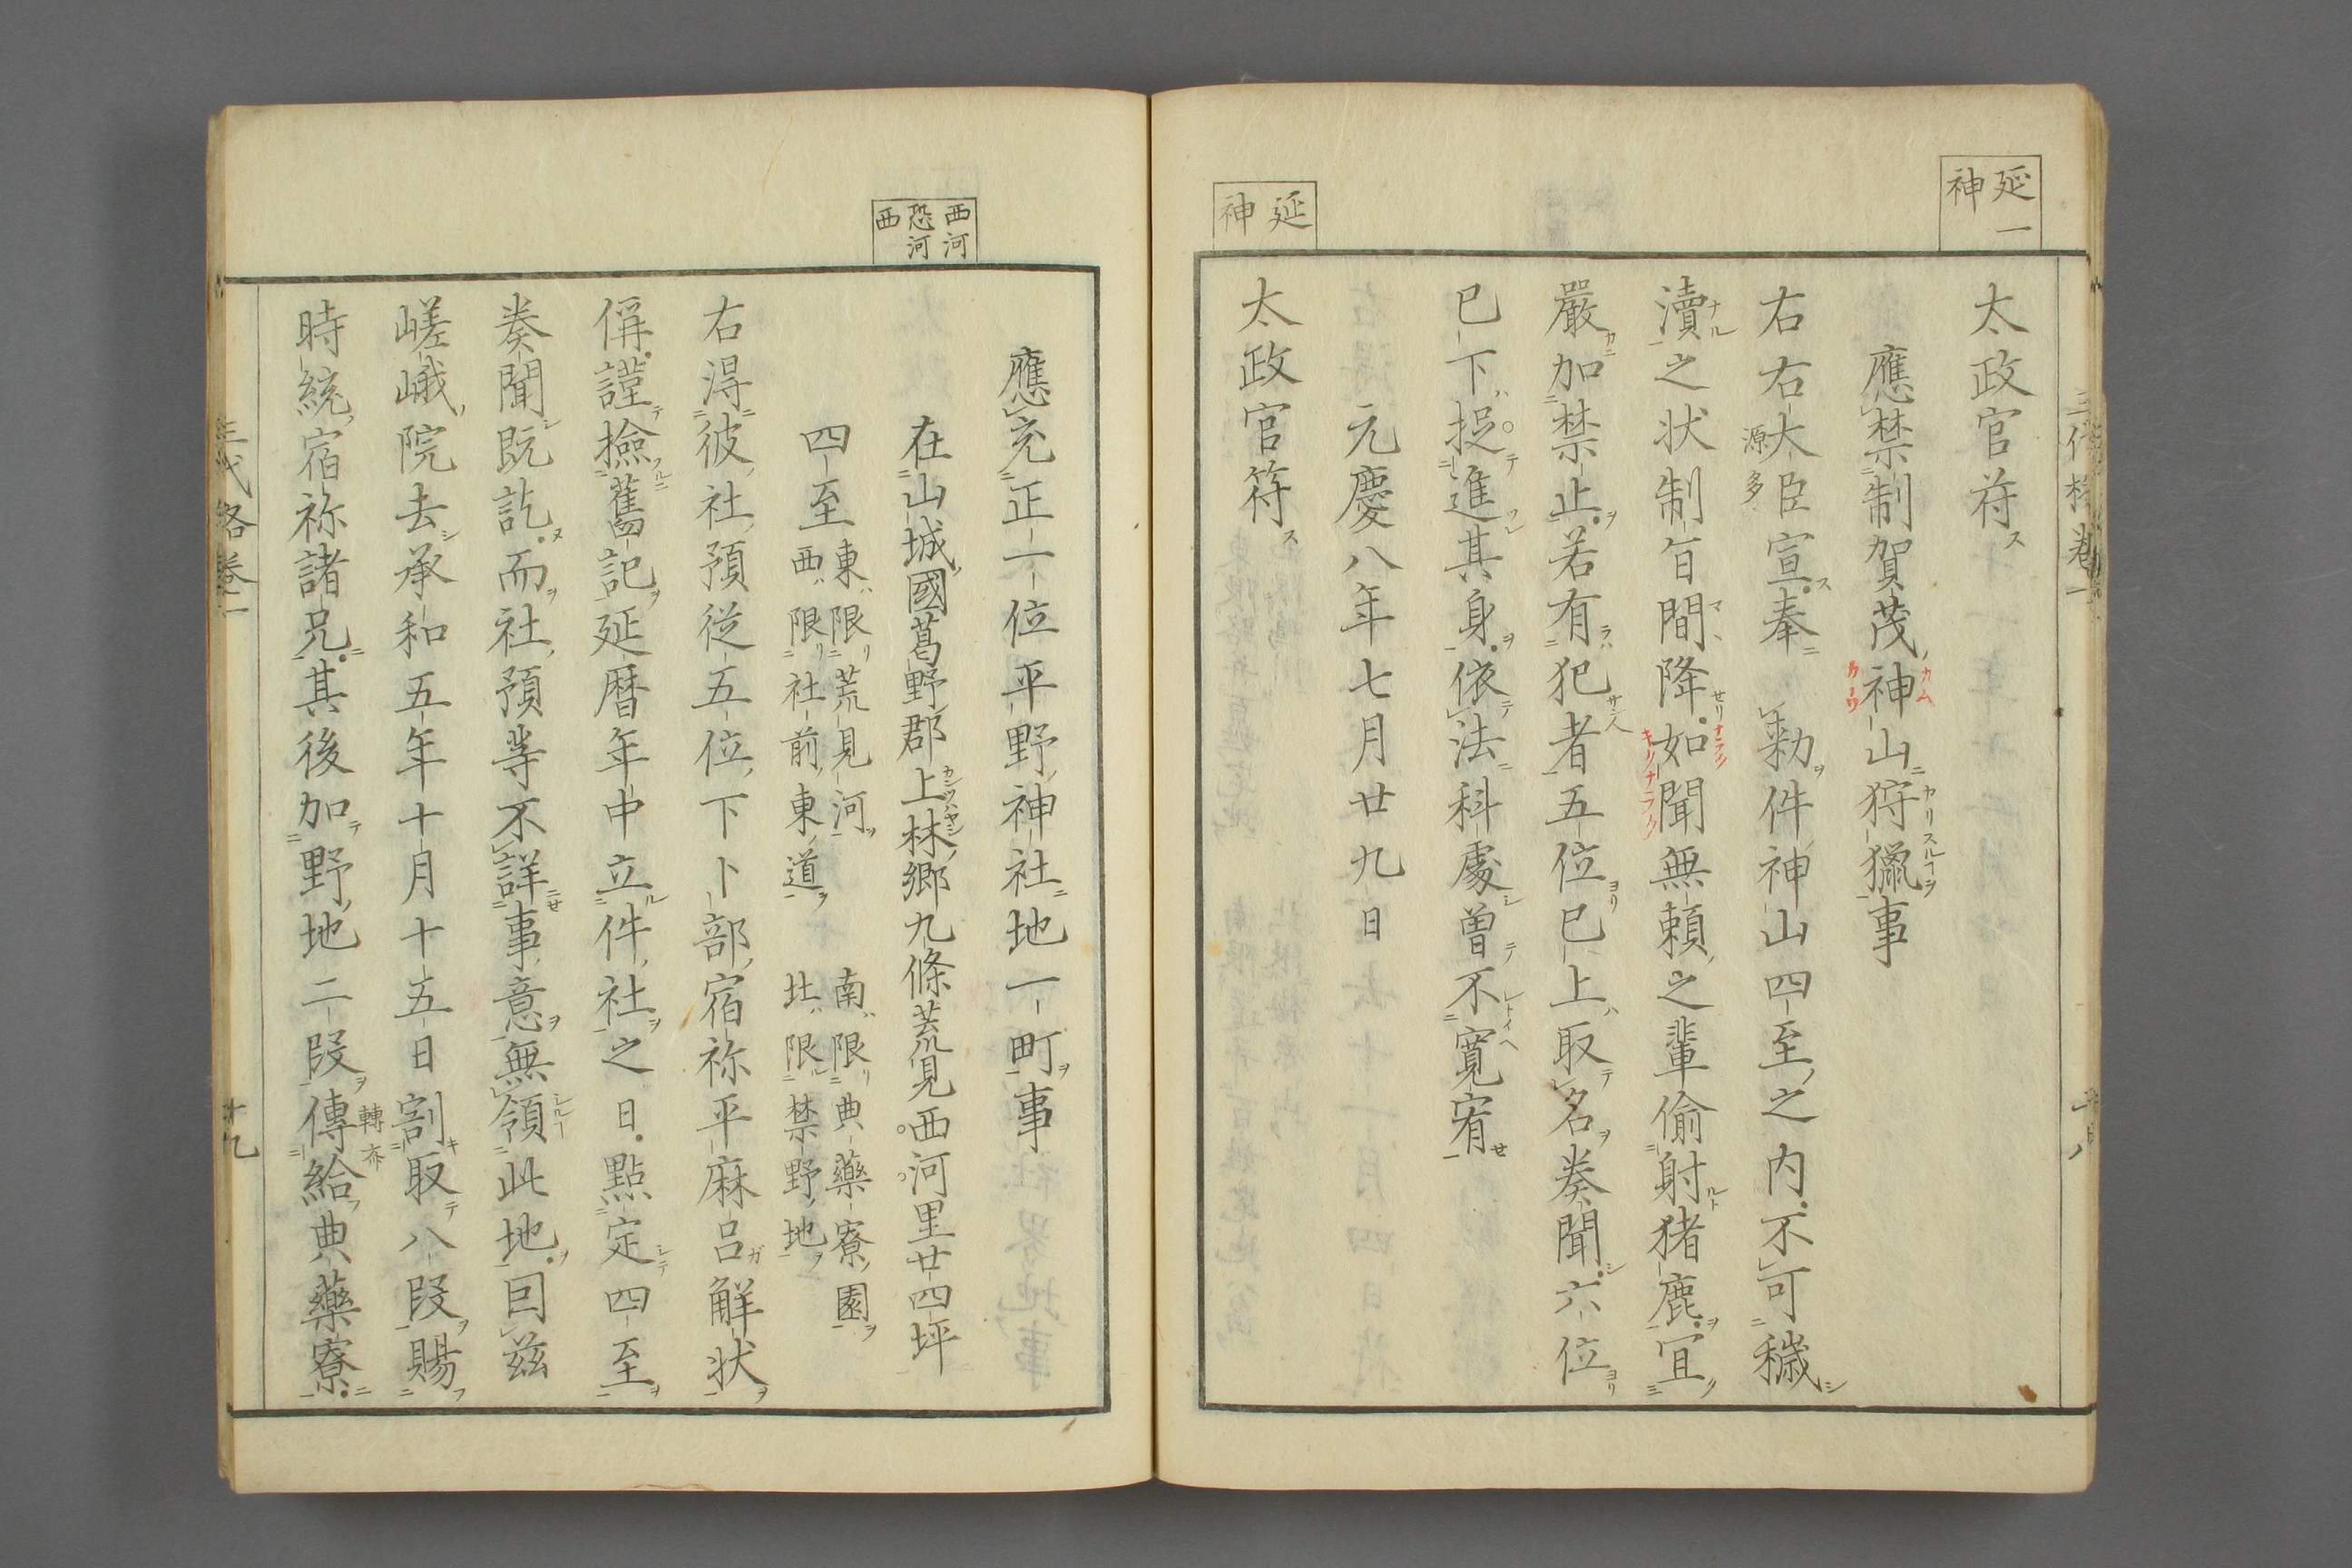 延一
神
太政官符
應禁制賀茂神山狩獵事
右右大臣宣奉　勅件神山四至之内不可穢
源多
瀆之状制旨間降如聞無頼之輩偷射猪鹿冝
嚴加禁止若有犯者五位已上取名奏聞六位
已下捉進其身依法科處曽不寛宥
元慶八年七月廿九日
太政官符
延
神
應充正一位平野神社地一町事
西河
恐河
西
在山城國葛野郡上林郷九條荒見西河里廿四坪
四至東限荒見河　南限典藥寮園
西限社前東道　北限禁野地
右得彼社預従五位下卜部宿祢平麻呂解状
偁謹撿舊記延暦年中立件社之日點定四至
奏聞既訖而社預等不詳事意無領此地囙兹
嵯峨院去承和五年十月十五日割取八段賜
時統宿祢諸兄其後加野地二段傳給典藥寮
轉亦
三代格卷一
十九